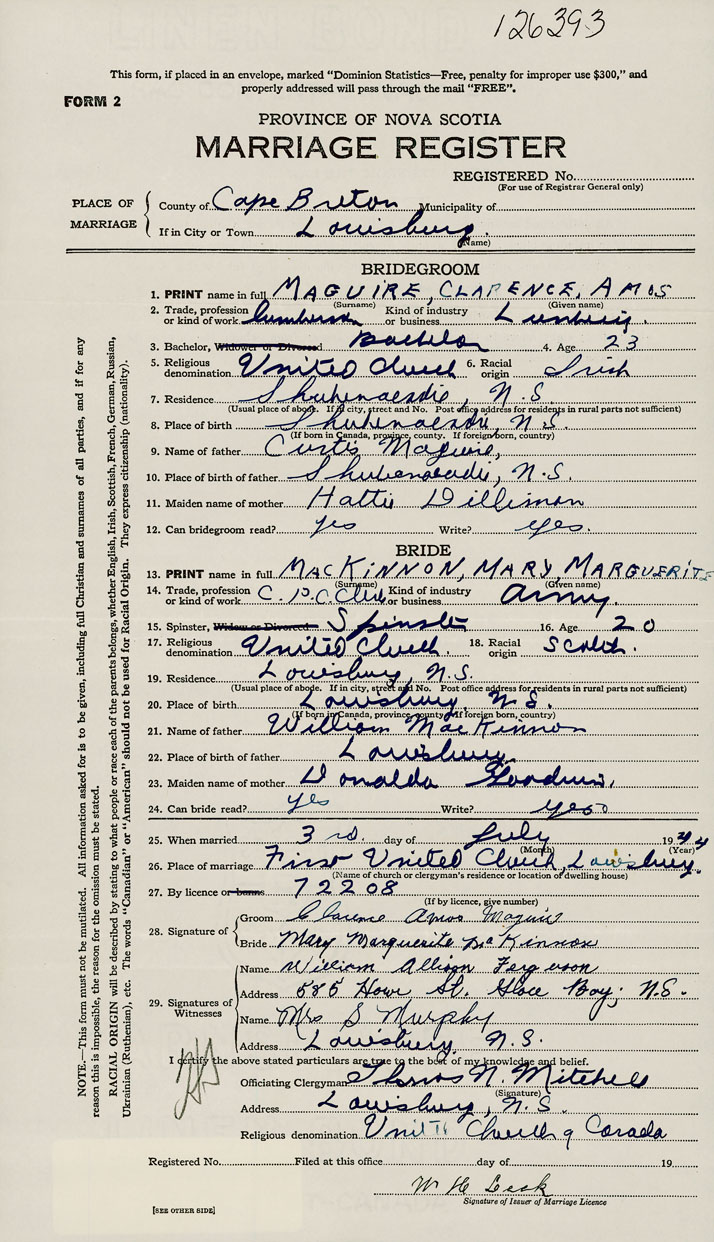 126393
This form, if placed in an envelope, marked "Dominion Statistics—Free, penalty for improper use $300," and
properly addressed will pass through the mail "FREE".
FORM 2
PROVINCE OF NOVA SCOTIA
MARRIAGE REGISTER
REGISTERED No.
(For use of Registrar General only)
PLACE OF MARRIAGE
County of Cape Breton Municipality of
If in City or Town Louisburg.
(Name)
BRIDEGROOM
1. PRINT name in full MAGUIRE, CLARENCE, AMOS
(Surname) (Given name)
2. Trade, profession or kind of work Lumberman Kind of industry or business Lumbering.
3. Bachelor, Widower or Divorced Bachelor 4. Age 23
5. Religious denomination United Church 6. Racial origin Irish
7. Residence Shubenacadie, N.S.
(Usual place of abode. If in city, street and No. Post office address for residents in rural parts not sufficient)
8. Place of birth Shubenacadie, N.S.
(If born in Canada, province, county. If foreign born, country)
9. Name of father Curtis Maguire,
10. Place of birth of father Shubenacadie, N.S.
11. Maiden name of mother Hattie
12. Can bridegroom read? yes Write? yes.
BRIDE
13. PRINT name in full MACKINNON, MARY, MARGUERITE
(Surname) (Given name)
14. Trade, profession or kind of work Kind of industry or business Army.
15. Spinster, Widow or Divorced Spinster 16. Age 20
17. Religious denomination United Church 18. Racial origin Scotch.
19. Residence Louisburg, N.S.
(Usual place of abode. If in city, street and No. Post office address for residents in rural parts not sufficient)
20. Place of birth Louisburg, N.S.
(If born in Canada, province, county. If foreign born, country)
21. Name of father William MacKinnon
22. Place of birth of father Louisburg.
23. Maiden name of mother Donalda
24. Can bride read? yes Write? yes
25. When married 3rd. day of July 1944
(Month) (Year)
26. Place of marriage First United Church, Louisburg.
(Name of church or clergyman's residence or location of dwelling house)
27. By licence or banns 72208
(If by licence, give number)
28. Signature of
Groom Clarence Amos Maguire
Bride Mary Marguerite MacKinnon
29. Signatures of Witnesses
Name William Allison Ferguson
Address 585 Howe St. Glace Bay, N.S.
Name Mrs S Murphy
Address Louisburg, N.S.
I certify the above stated particulars are true to the best of my knowledge and belief.
Officiating Clergyman Thomas N. Mitchell
(Signature)
Address Louisburg, N.S.
Religious denomination United Church of Canada
Registered No. Filed at this office day of 19
W H Leek
Signature of Issuer of Marriage Licence
[SEE OTHER SIDE]
NOTE.—This form must not be mutilated. All information asked for is to be given, including full Christian and surnames of all parties, and if for any
reason this is impossible, the reason for the omission must be stated.
RACIAL ORIGIN will be described by stating to what people or race each of the parents belongs, whether English, Irish, Scottish, French, German, Russian,
Ukrainian (Ruthenian), etc. The words "Canadian" or "American" should not be used for Racial Origin. They express citizenship (nationality).